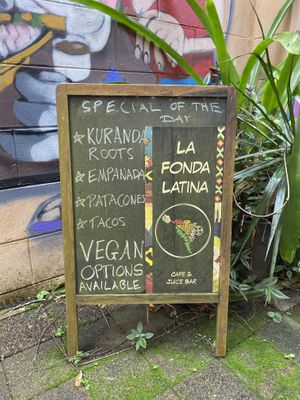 SPECIAL OF THE
DAY
☆ KURANDA
ROOTS
☆ EMPANADA
☆ PATACONES
☆ TACOS
VEGAN
OPTIONS
AVAILABLE
LA
FONDA
LATINA
CAFE &
JUICE BAR